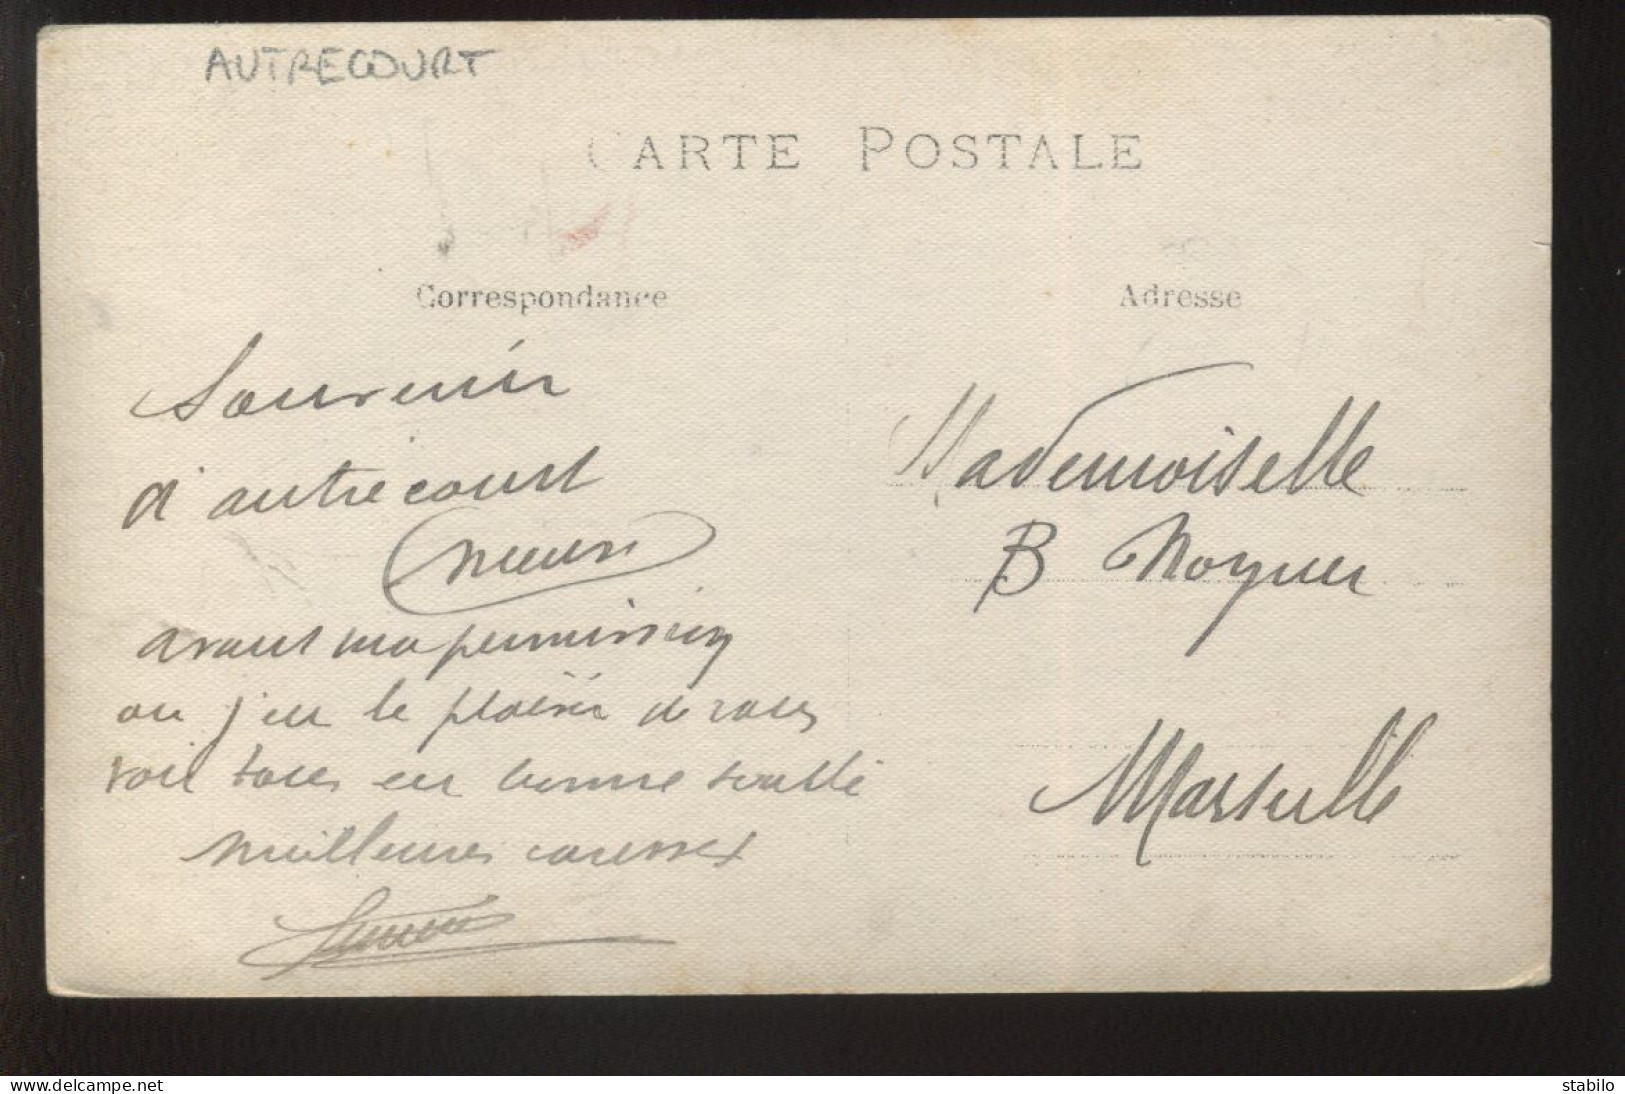 AUTRECOURT
CARTE POSTALE
Correspondance
Adresse
Souvenir
d'autrecourt
(meuse)
avant ma permission
ou j'eu le plaisir de vous
voir tous en bonne santé
meilleures caresses
Mademoiselle
B Noguer
Marseille
www.delcampe.net
stabilo